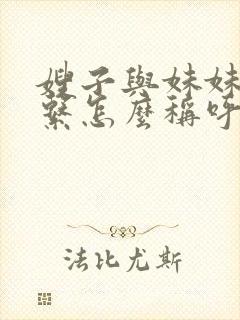 嫂子與妹妹
繫怎麼稱呼
法比尤斯